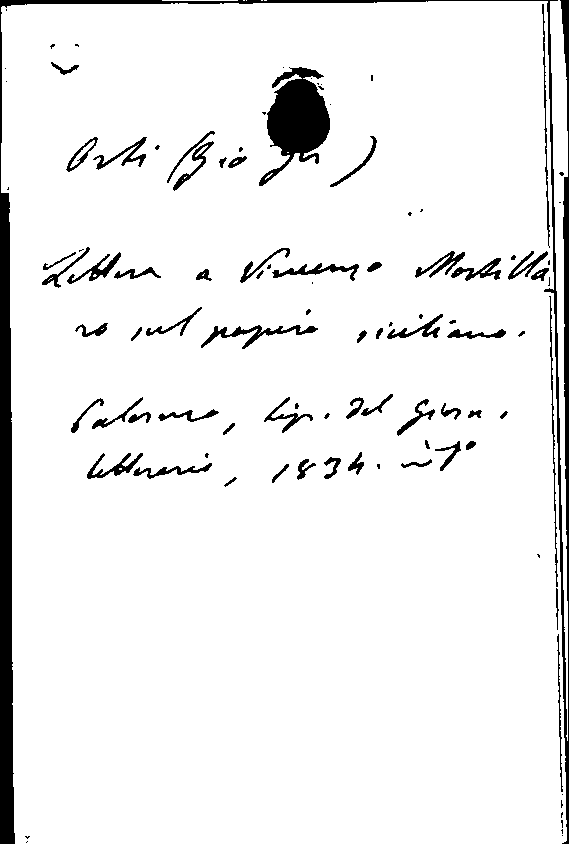 Orti (Giorgio)
Lettera a Vincenzo Mortilla
ro sul papiro siciliano.
Palermo, tip. del Giorn.
letterario, 1834. in f°